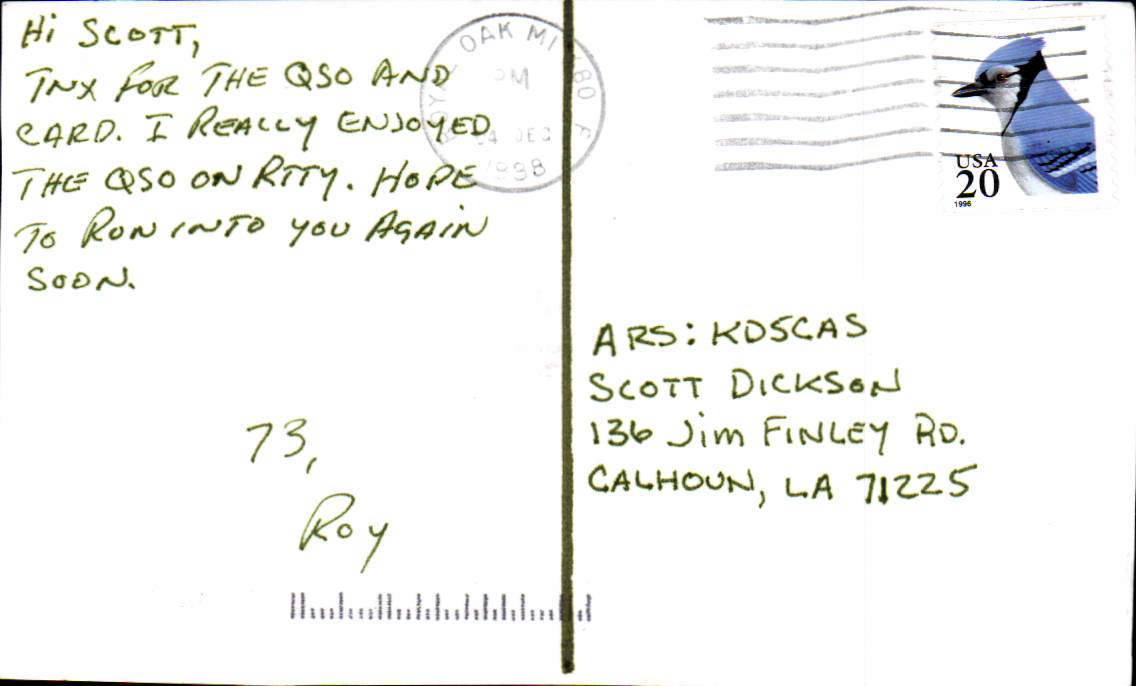 Hi SCOTT,
TNX FOR THE QSO AND
CARD. I REALLY ENJOYED
THE QSO ON RTTY. HOPE
TO RUN INTO YOU AGAIN
SOON.
73,
ROY
ROYAL OAK MI 480
PM
DEC
1998
USA
20
1996
ARS: KD5CAS
SCOTT DICKSON
136 Jim FINLEY RD.
CALHOUN, LA 71225